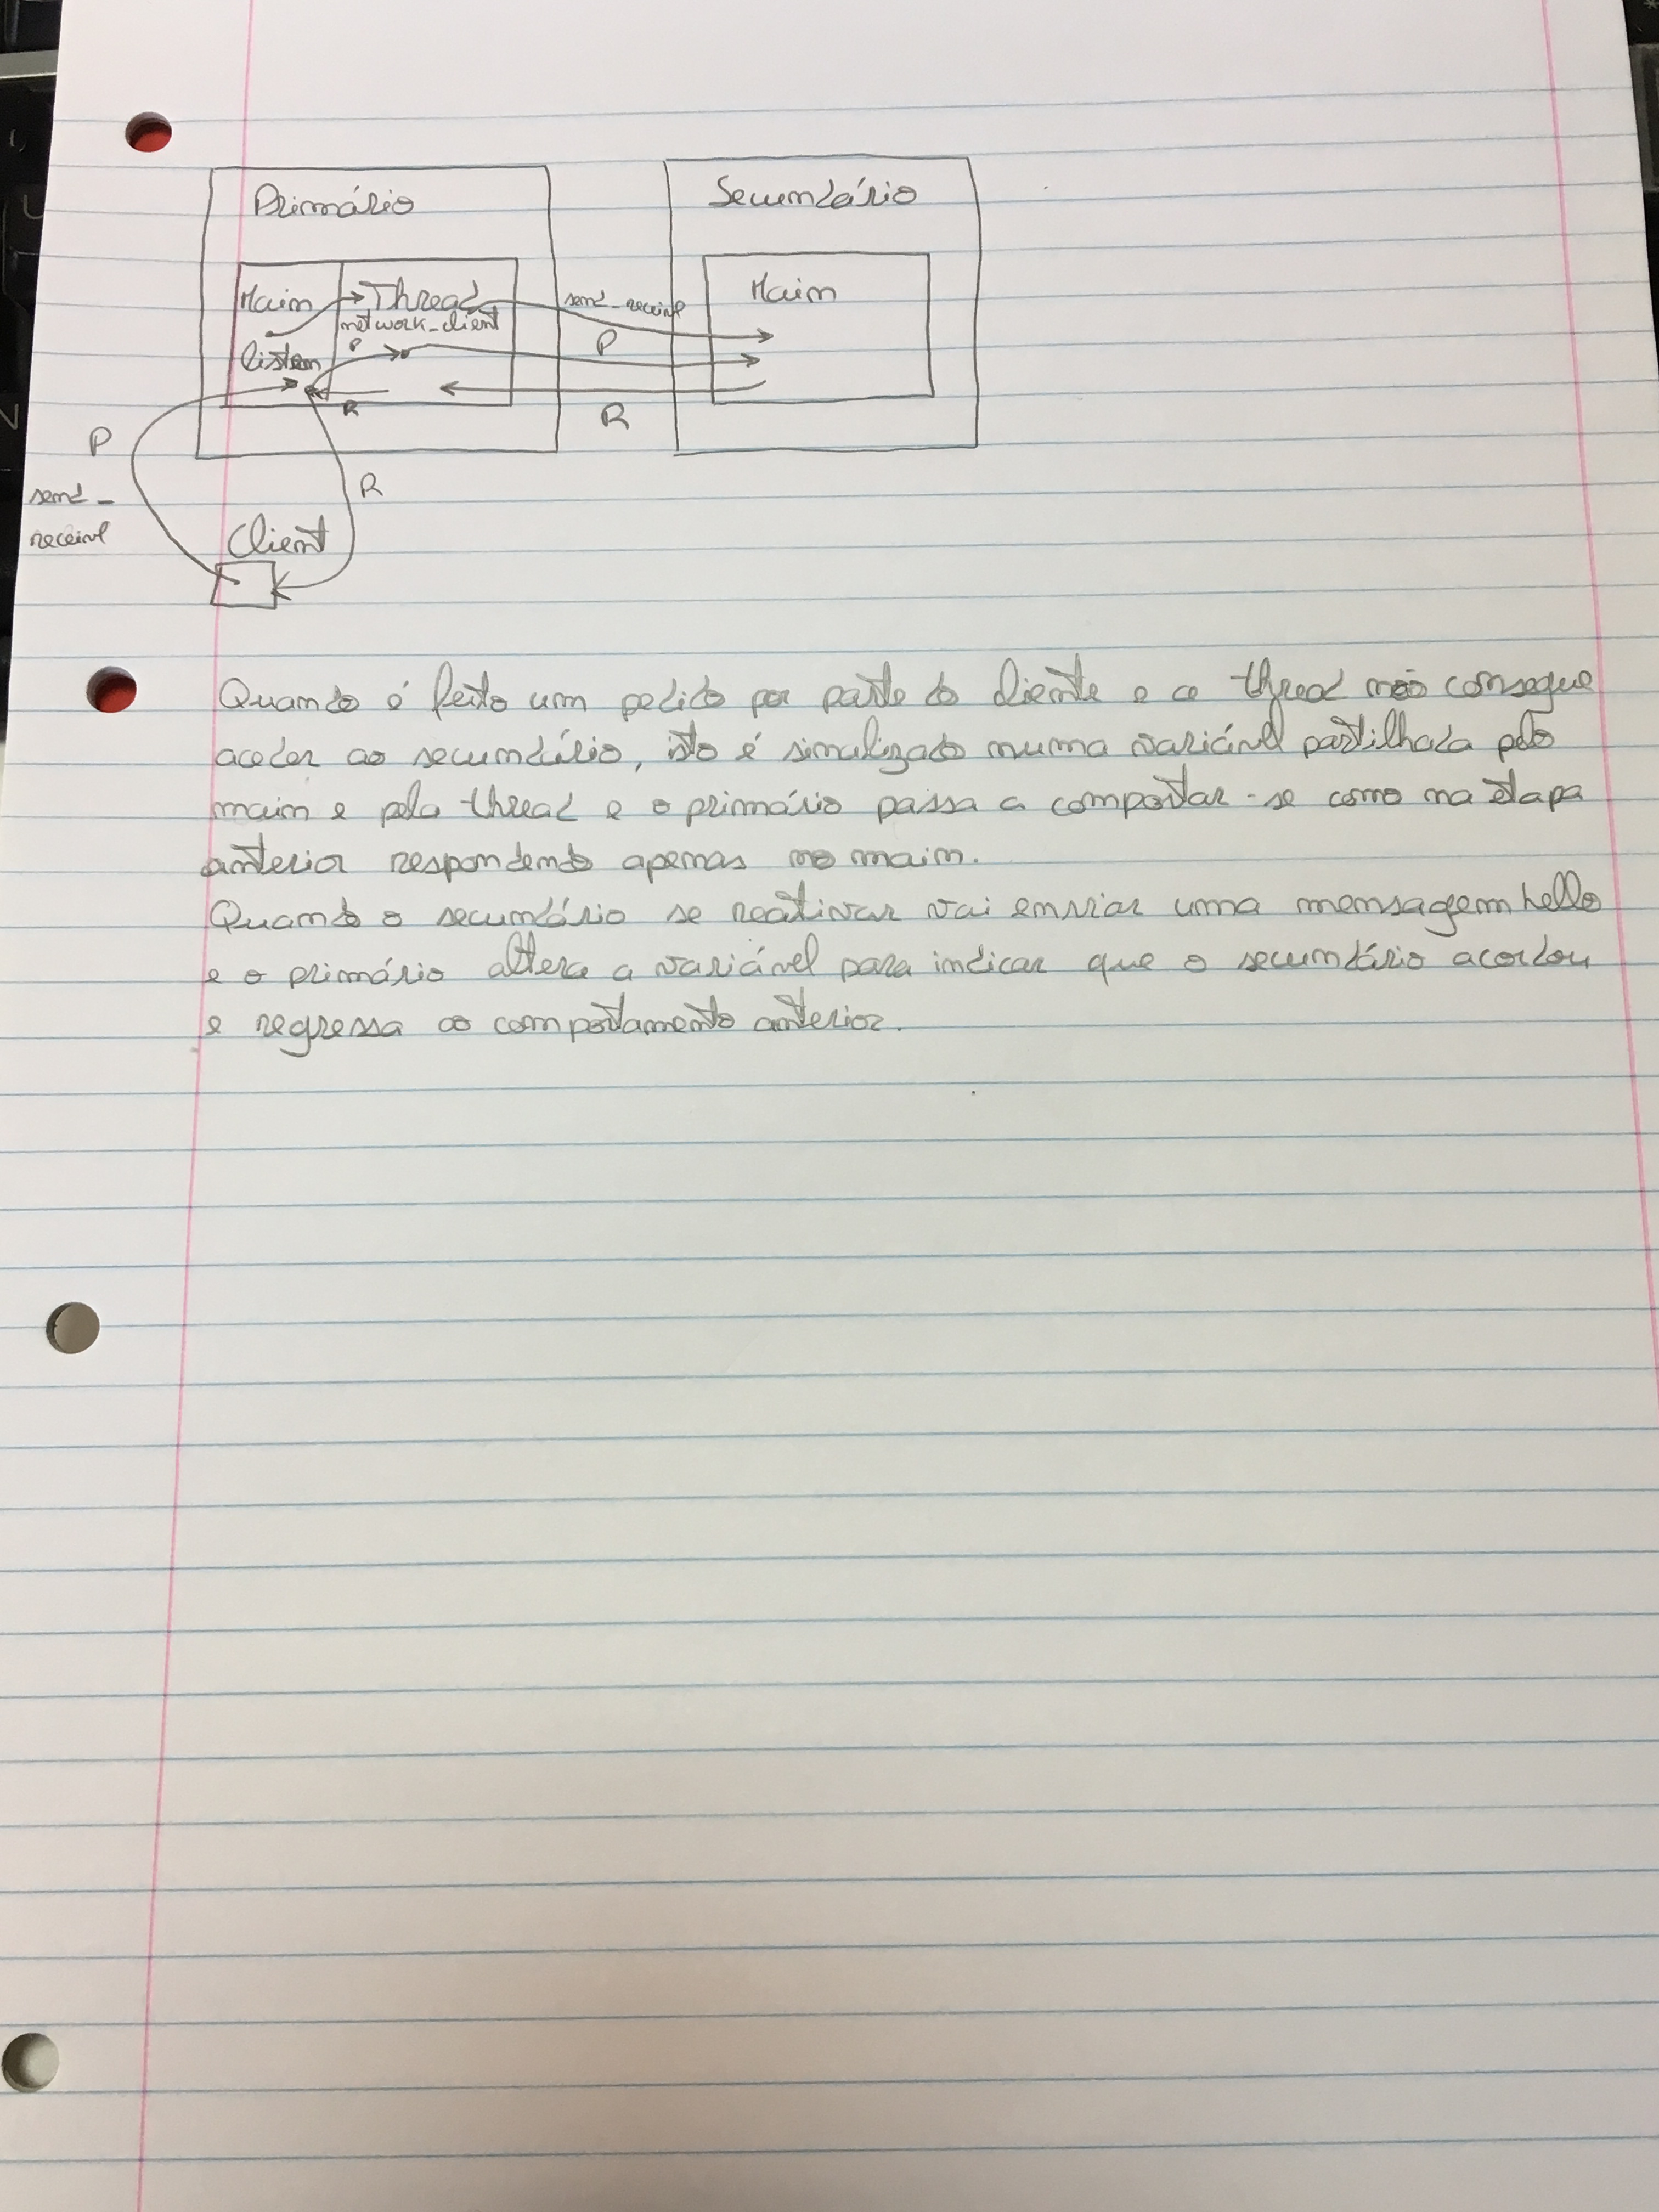 Primário
Secundário
Main
Thread
send_receive
Main
network_client
listen
P
P
R
R
P
R
send_
receive
Client
Quando é feito um pedido por parte do cliente e a thread não consegue
aceder ao secundário, isto é sinalizado numa variável partilhada pelo
main e pela thread e o primário passa a comportar-se como na etapa
anterior respondendo apenas no main.
Quando o secundário se reativar vai enviar uma mensagem hello
e o primário altera a variável para indicar que o secundário acordou
e regressa ao comportamento anterior.